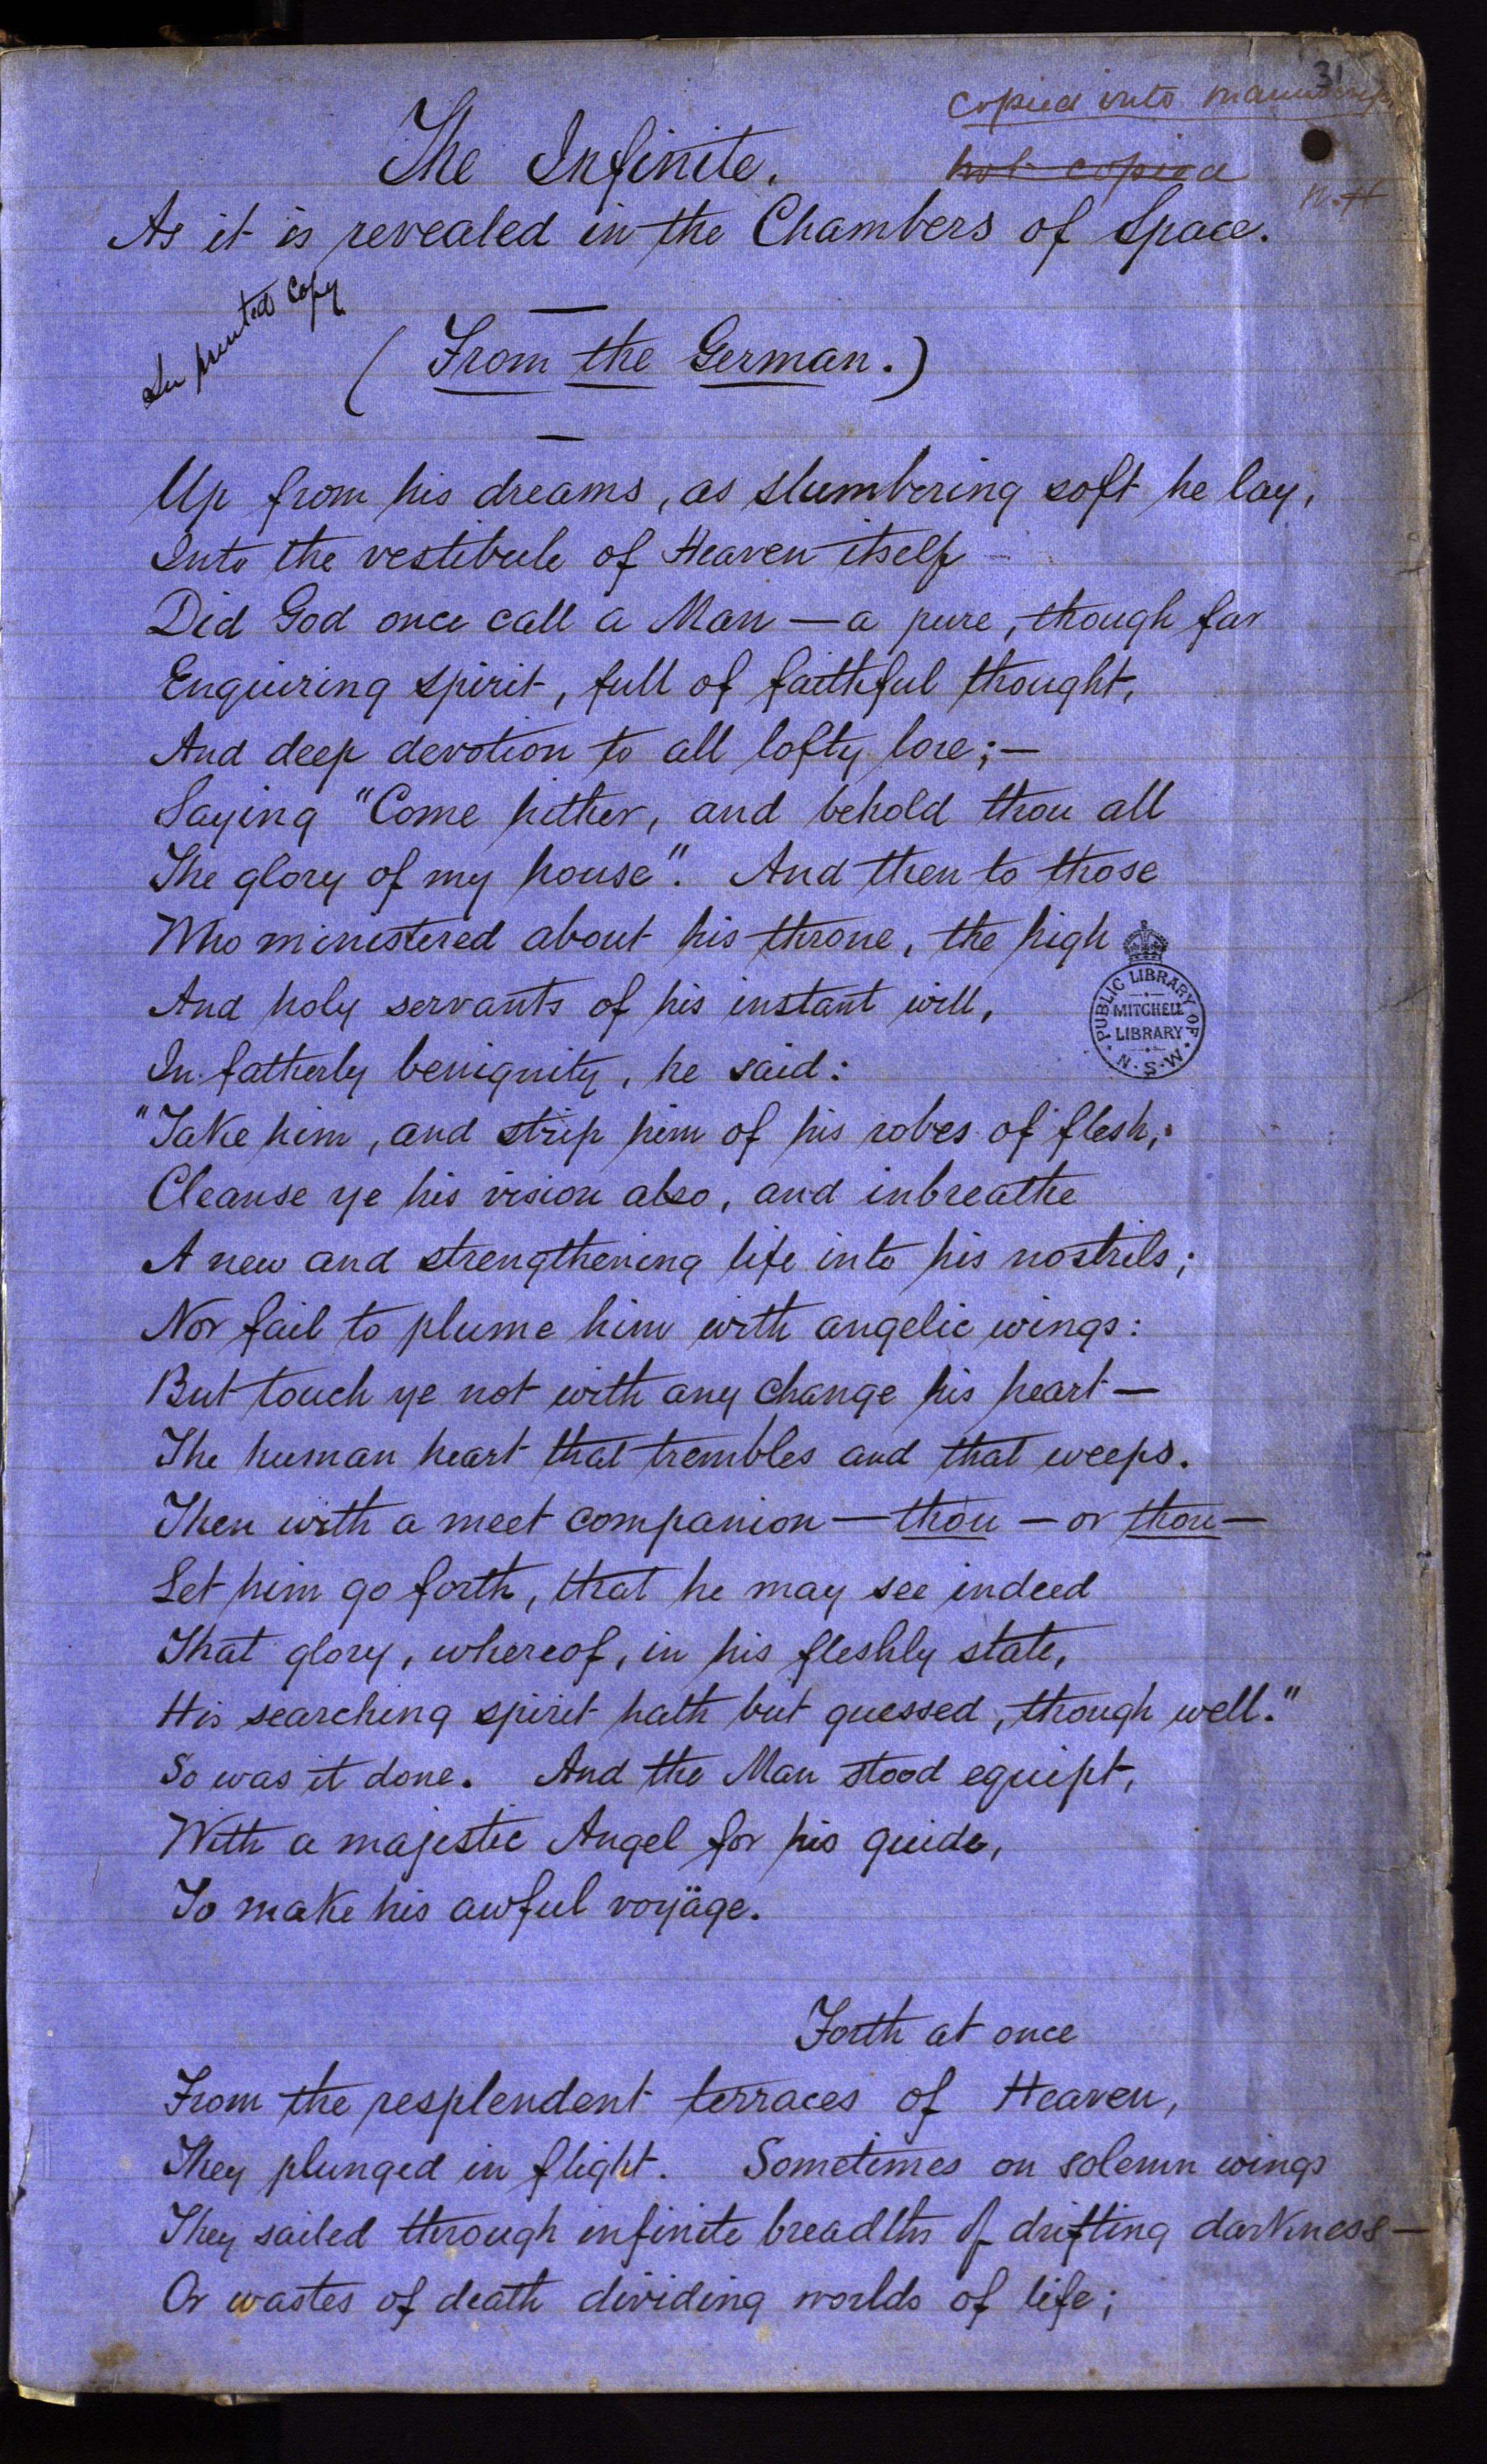 31
copied into manuscript
not copied
N.H
The Infinite.
As it is revealed in the Chambers of Space.
In printed Copy
(From the German.)
Up from his dreams, as slumbering soft he lay,
Into the vestibule of Heaven itself
Did God once call a Man — a pure, though far
Enquiring spirit, full of faithful thought,
And deep devotion to all lofty lore; —
Saying "Come hither, and behold thou all
The glory of my house". And then to those
Who ministered about his throne, the high
And holy servants of his instant will,
In fatherly benignity, he said:
"Take him, and strip him of his robes of flesh;
Cleanse ye his vision also, and inbreathe
A new and strengthening life into his nostrils;
Nor fail to plume him with angelic wings:
But touch ye not with any change his heart —
The human heart that trembles and that weeps.
Then with a meet companion — thou — or thou —
Let him go forth, that he may see indeed
That glory, whereof, in his fleshly state,
His searching spirit hath but guessed, though well."
So was it done. And the Man stood equipt,
With a majestic Angel for his guide,
To make his awful voyäge.
Forth at once
From the resplendent terraces of Heaven,
They plunged in flight. Sometimes on solemn wings
They sailed through infinite breadths of drifting darkness —
Or wastes of death dividing worlds of life;
PUBLIC LIBRARY OF N.S.W.
MITCHELL
LIBRARY